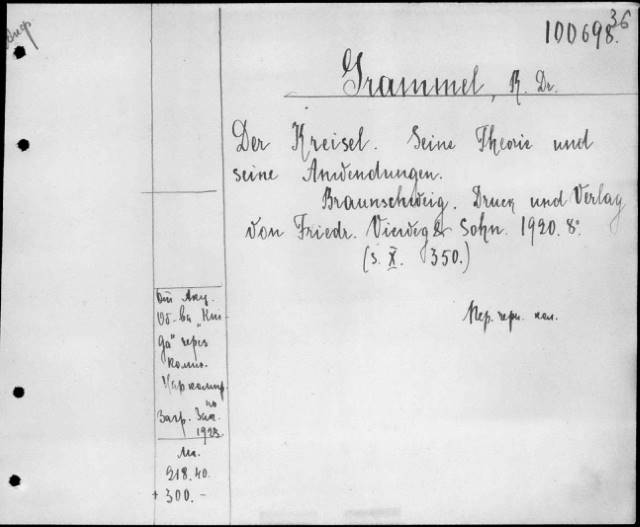 100698.
36
Grammel, R. Dr.
Der Kreisel. Seine Theorie und
seine Anwendungen.
Braunschweig. Druck und Verlag
von Friedr. Vieweg & Sohn. 1920. 8°
(S. X. 350.)
Пер. черн. кол.
От Акц.
Об-ва „Кни
га" через
Комис.
Наркомпр.
по
Загр. Зак.
1923.
Мк.
218.40.
+ 300.-